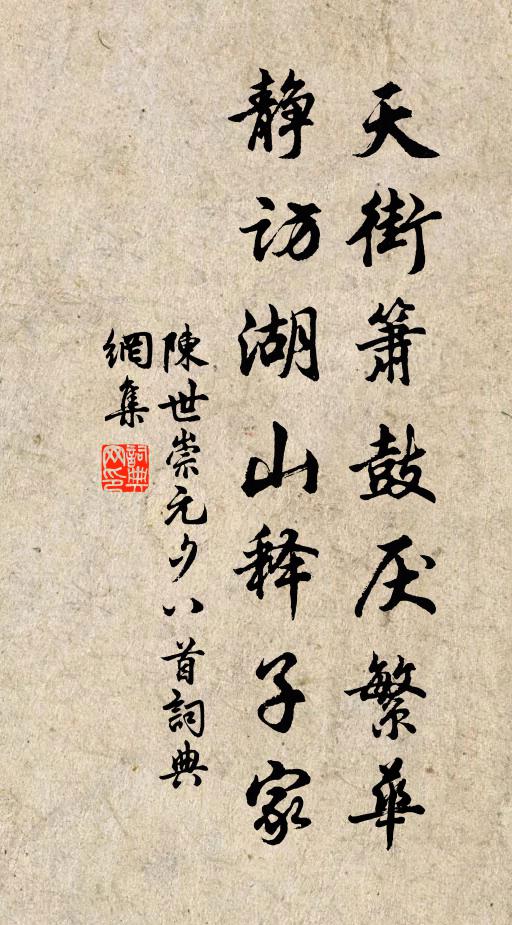 天街箫鼓厌繁華
静访湖山释子家
陳世崇元夕八首詞典
網集
詞典
网印